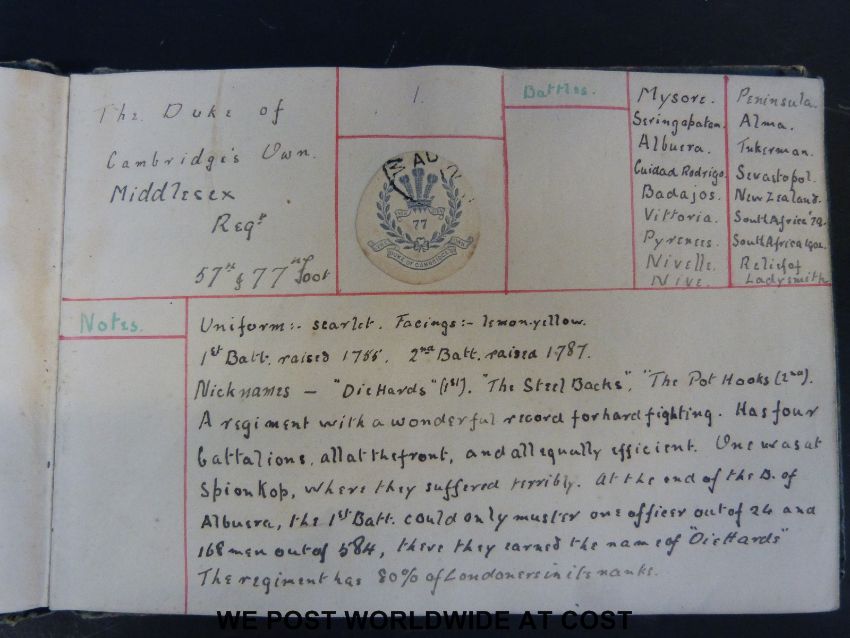 The Duke of
Cambridge's Own.
Middlesex
Regt
57th & 77th Foot
1.
77
DUKE OF CAMBRIDGE'S
Battles.
Mysore.
Seringapatam.
Albuera.
Cuidad Rodrigo.
Badajos.
Vittoria.
Pyrenees.
Nivelle.
Nive.
Peninsula.
Alma.
Inkerman.
Sevastopol.
New Zealand.
South Africa '79.
South Africa 1900.
Relief of
Ladysmith
Notes.
Uniform:- scarlet. Facings:- lemon-yellow.
1st Batt. raised 1755. 2nd Batt. raised 1787.
Nicknames — "Die Hards" (1st). "The Steel Backs", "The Pot Hooks (2nd).
A regiment with a wonderful record for hard fighting. Has four
battalions, all at the front, and all equally efficient. One was at
Spion Kop, where they suffered terribly. At the end of the B. of
Albuera, the 1st Batt. could only muster one officer out of 24 and
168 men out of 584, there they earned the name of "Die Hards"
The regiment has 80% of Londoners in its ranks.
WE POST WORLDWIDE AT COST